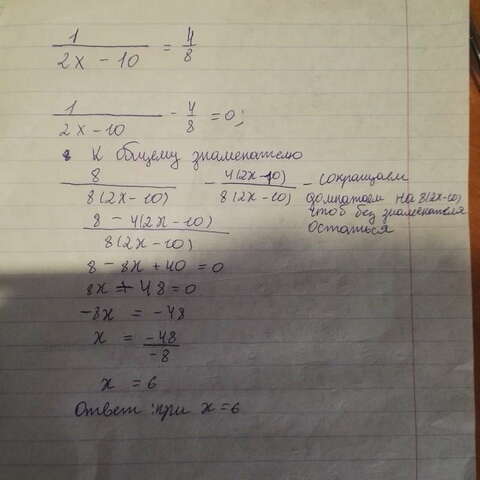 1/(2x - 10) = 4/8
1/(2x - 10) - 4/8 = 0;
К общему знаменателю
8/(8(2x - 10)) - 4(2x - 10)/(8(2x - 10)) - сокращаем
домнажаем на 8(2x-10)
чтоб без знаменателя
остаться
(8 - 4(2x - 10))/(8(2x - 10))
8 - 8x + 40 = 0
8x + 48 = 0
-8x = -48
x = -48/-8
x = 6
Ответ: при x = 6